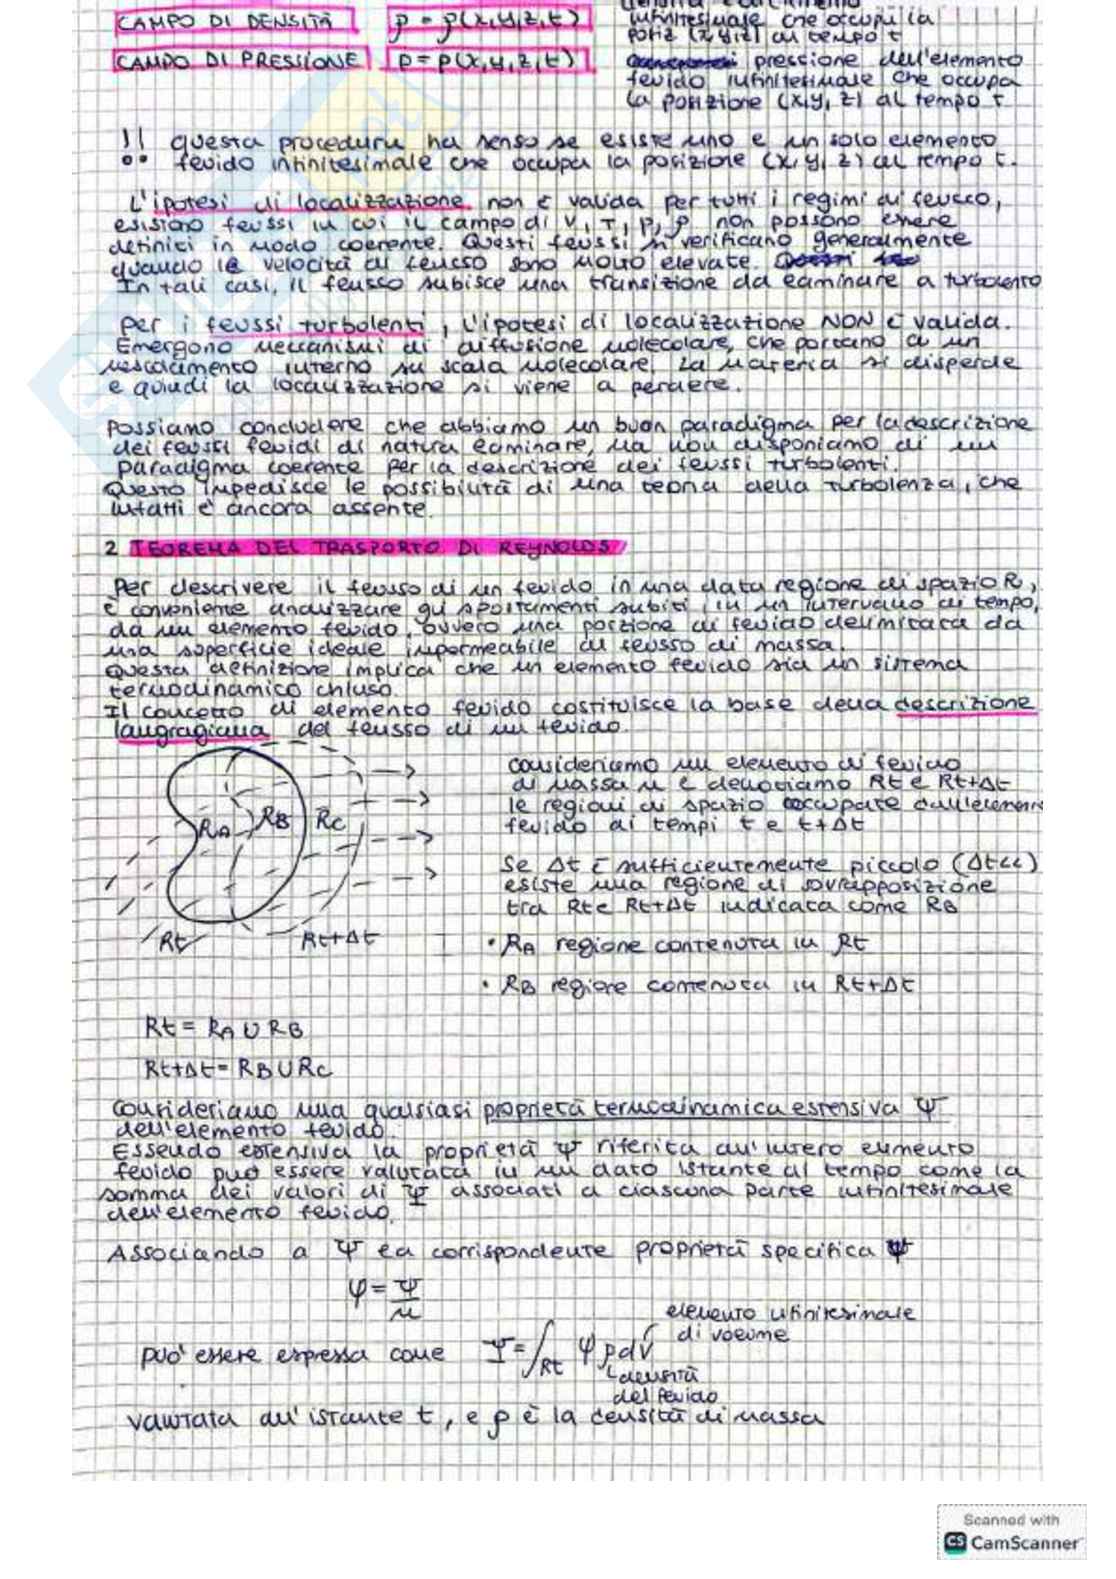 CAMPO DI DENSITÀ ρ = ρ(x,y,z,t) infinitesimale che occupi la
posiz (x,y,z) al tempo t
CAMPO DI PRESSIONE p = p(x,y,z,t) pressione dell'elemento
fluido infinitesimale che occupa
la posizione (x,y,z) al tempo t
!! questa procedura ha senso se esiste uno e un solo elemento
fluido infinitesimale che occupa la posizione (x,y,z) al tempo t.
L'ipotesi di localizzazione non è valida per tutti i regimi di flusso,
esistono flussi in cui il campo di v, T, p, ρ non possono essere
definiti in modo coerente. Questi flussi si verificano generalmente
quando le velocità di flusso sono molto elevate
In tali casi, il flusso subisce una transizione da laminare a turbolento
Per i flussi turbolenti, l'ipotesi di localizzazione NON è valida.
Emergono meccanismi di diffusione molecolare, che portano a un
mescolamento interno su scala molecolare. La materia si disperde
e quindi la localizzazione si viene a perdere.
Possiamo concludere che abbiamo un buon paradigma per la descrizione
dei flussi fluidi di natura laminare, ma non disponiamo di un
paradigma coerente per la descrizione dei flussi turbolenti.
Questo impedisce le possibilità di una teoria della turbolenza, che
infatti è ancora assente.
2 TEOREMA DEL TRASPORTO DI REYNOLDS
Per descrivere il flusso di un fluido in una data regione di spazio R,
è conveniente analizzare gli spostamenti subiti, in un intervallo di tempo,
da un elemento fluido, ovvero una porzione di fluido delimitata da
una superficie ideale impermeabile al flusso di massa.
Questa definizione implica che un elemento fluido sia un sistema
termodinamico chiuso.
Il concetto di elemento fluido costituisce la base della descrizione
laugragiana del flusso di un fluido.
consideriamo un elemento di fluido
di massa m e denotiamo Rt e Rt+Δt
le regioni di spazio occupate dall'elemento
fluido ai tempi t e t+Δt
RA RB RC
Se Δt è sufficientemente piccolo (Δt<<)
esiste una regione di sovrapposizione
tra Rt e Rt+Δt indicata come RB
Rt Rt+Δt
• RA regione contenuta in Rt
• RB regione contenuta in Rt+Δt
Rt = RA ∪ RB
Rt+Δt = RB ∪ RC
Consideriamo una qualsiasi proprietà termodinamica estensiva Ψ
dell'elemento fluido.
Essendo estensiva la proprietà Ψ riferita all'intero elemento
fluido può essere valutata in un dato istante di tempo come la
somma dei valori di Ψ associati a ciascuna parte infinitesimale
dell'elemento fluido.
Associando a Ψ la corrispondente proprietà specifica ψ
ψ = Ψ/m
elemento infinitesimale
di volume
può essere espressa come Ψ = ∫Rt ψ ρ dV
densità
del fluido
valutata all'istante t, e ρ è la densità di massa
Scanned with
CS CamScanner